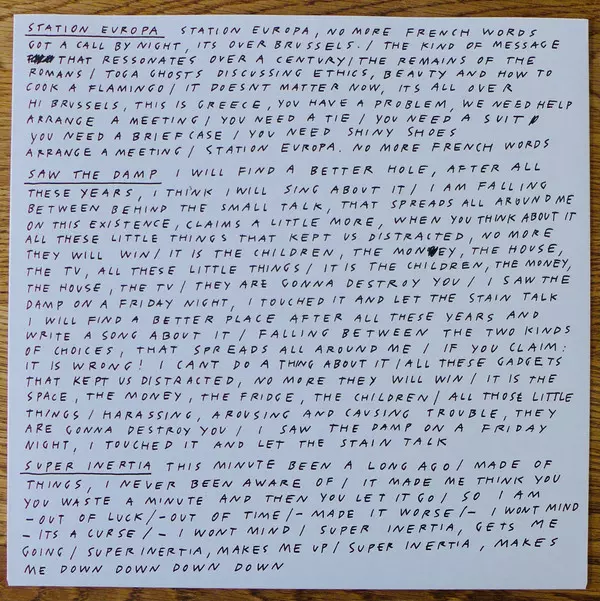 STATION EUROPA STATION EUROPA, NO MORE FRENCH WORDS
GOT A CALL BY NIGHT, ITS OVER BRUSSELS. / THE KIND OF MESSAGE
THAT RESSONATES OVER A CENTURY / THE REMAINS OF THE
ROMANS / TOGA GHOSTS DISCUSSING ETHICS, BEAUTY AND HOW TO
COOK A FLAMINGO / IT DOESNT MATTER NOW, ITS ALL OVER
HI BRUSSELS, THIS IS GREECE, YOU HAVE A PROBLEM, WE NEED HELP
ARRANGE A MEETING / YOU NEED A TIE / YOU NEED A SUIT
YOU NEED A BRIEFCASE / YOU NEED SHINY SHOES
ARRANGE A MEETING / STATION EUROPA. NO MORE FRENCH WORDS
SAW THE DAMP I WILL FIND A BETTER HOLE, AFTER ALL
THESE YEARS, I THINK I WILL SING ABOUT IT / I AM FALLING
BETWEEN BEHIND THE SMALL TALK, THAT SPREADS ALL AROUND ME
ON THIS EXISTENCE, CLAIMS A LITTLE MORE, WHEN YOU THINK ABOUT IT
ALL THESE LITTLE THINGS THAT KEPT US DISTRACTED, NO MORE
THEY WILL WIN / IT IS THE CHILDREN, THE MONEY, THE HOUSE,
THE TV, ALL THESE LITTLE THINGS / IT IS THE CHILDREN, THE MONEY,
THE HOUSE, THE TV / THEY ARE GONNA DESTROY YOU / I SAW THE
DAMP ON A FRIDAY NIGHT, I TOUCHED IT AND LET THE STAIN TALK
I WILL FIND A BETTER PLACE AFTER ALL THESE YEARS AND
WRITE A SONG ABOUT IT / FALLING BETWEEN THE TWO KINDS
OF CHOICES, THAT SPREADS ALL AROUND ME / IF YOU CLAIM:
IT IS WRONG! I CANT DO A THING ABOUT IT / ALL THESE GADGETS
THAT KEPT US DISTRACTED, NO MORE THEY WILL WIN / IT IS THE
SPACE, THE MONEY, THE FRIDGE, THE CHILDREN / ALL THOSE LITTLE
THINGS / HARASSING, AROUSING AND CAUSING TROUBLE, THEY
ARE GONNA DESTROY YOU / I SAW THE DAMP ON A FRIDAY
NIGHT, I TOUCHED IT AND LET THE STAIN TALK
SUPER INERTIA THIS MINUTE BEEN A LONG AGO / MADE OF
THINGS, I NEVER BEEN AWARE OF / IT MADE ME THINK YOU
YOU WASTE A MINUTE AND THEN YOU LET IT GO / SO I AM
- OUT OF LUCK / - OUT OF TIME / - MADE IT WORSE / - I WONT MIND
- ITS A CURSE / - I WONT MIND / SUPER INERTIA, GETS ME
GOING / SUPER INERTIA, MAKES ME UP / SUPER INERTIA, MAKES
ME DOWN DOWN DOWN DOWN